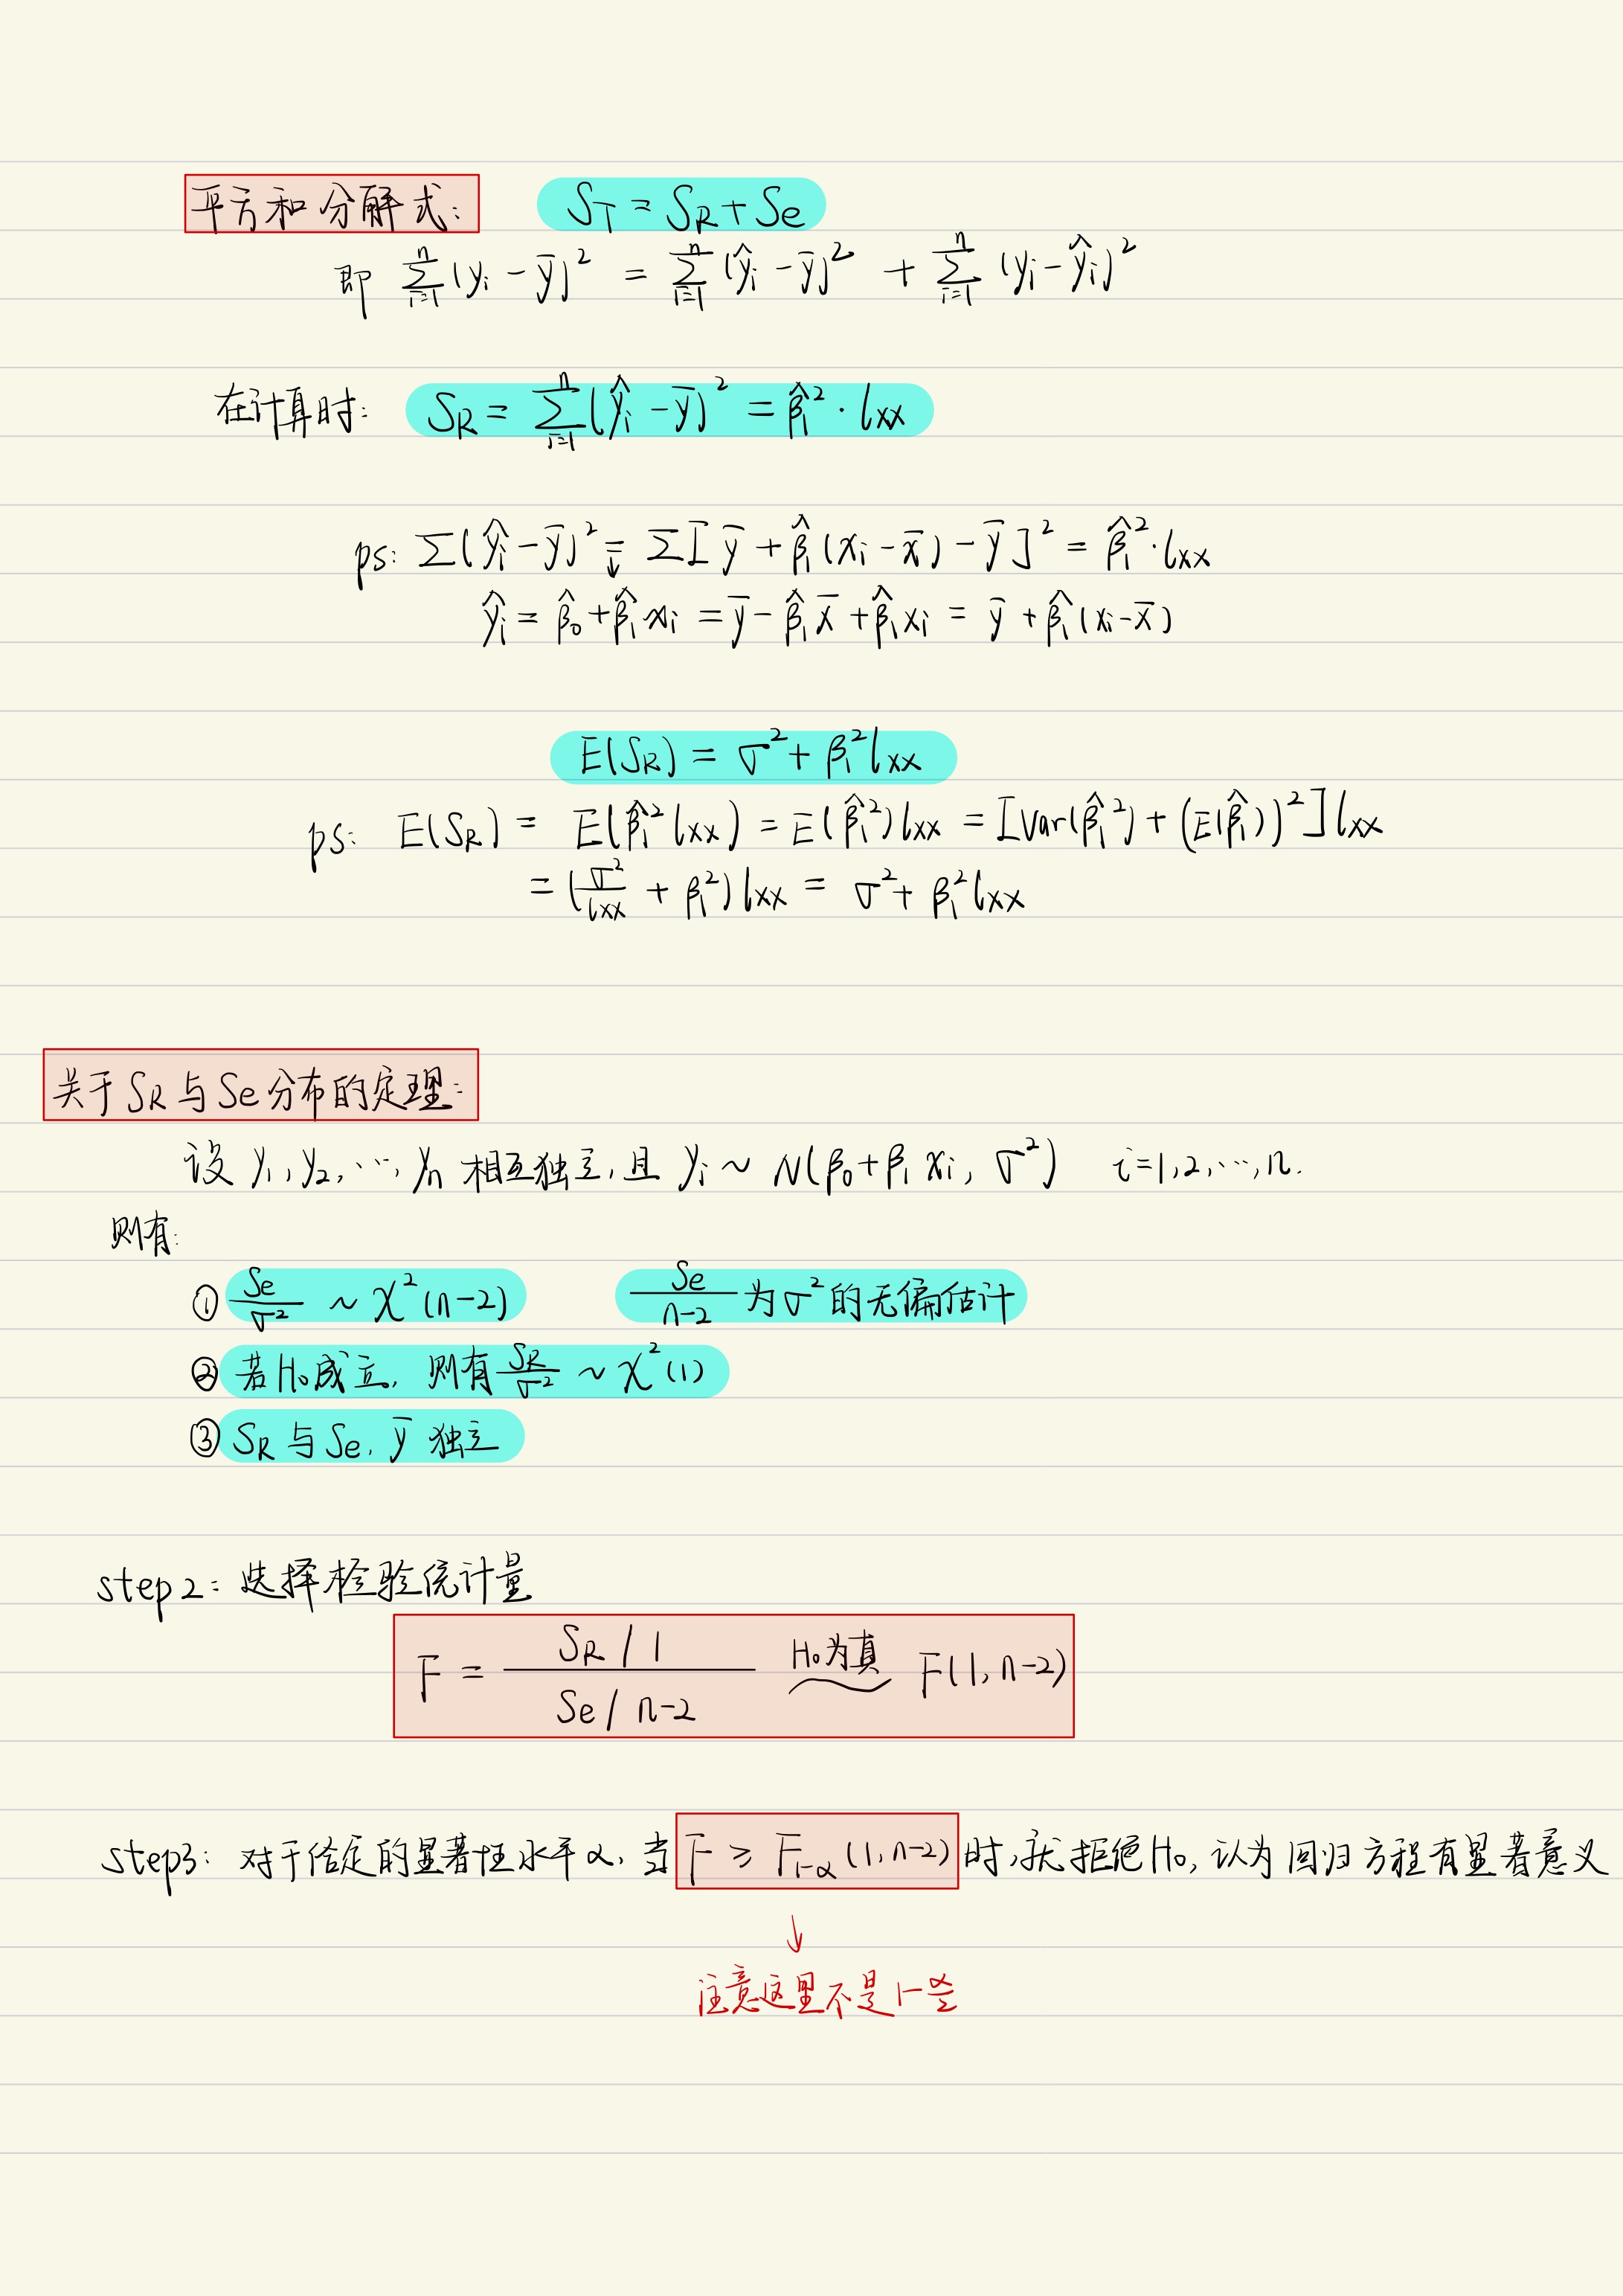 平方和分解式: S_T = S_R + S_e
即 \sum_{i=1}^{n} (y_i - \bar{y})^2 = \sum_{i=1}^{n} (\hat{y}_i - \bar{y})^2 + \sum_{i=1}^{n} (y_i - \hat{y}_i)^2
在计算时: S_R = \sum_{i=1}^{n} (\hat{y}_i - \bar{y})^2 = \hat{β}_1^2 · l_{xx}
ps: \sum (\hat{y}_i - \bar{y})^2 = \sum [\bar{y} + \hat{β}_1 (x_i - \bar{x}) - \bar{y}]^2 = \hat{β}_1^2 · l_{xx}
↓
\hat{y}_i = \hat{β}_0 + \hat{β}_1 x_i = \bar{y} - \hat{β}_1 \bar{x} + \hat{β}_1 x_i = \bar{y} + \hat{β}_1 (x_i - \bar{x})
E(S_R) = σ^2 + β_1^2 l_{xx}
ps: E(S_R) = E(\hat{β}_1^2 l_{xx}) = E(\hat{β}_1^2) l_{xx} = [Var(\hat{β}_1^2) + (E(\hat{β}_1))^2] l_{xx}
= (\frac{σ^2}{l_{xx}} + β_1^2) l_{xx} = σ^2 + β_1^2 l_{xx}
关于 S_R 与 S_e 分布的定理:
设 y_1, y_2, ···, y_n 相互独立, 且 y_i ~ N(β_0 + β_1 x_i, σ^2) i=1,2,···,n.
则有:
① \frac{S_e}{σ^2} ~ χ^2(n-2) \frac{S_e}{n-2} 为 σ^2 的无偏估计
② 若 H_0 成立, 则有 \frac{S_R}{σ^2} ~ χ^2(1)
③ S_R 与 S_e, \bar{y} 独立
step2: 选择检验统计量
F = \frac{S_R / 1}{S_e / n-2} \overset{H_0为真}{~} F(1, n-2)
step3: 对于给定的显著性水平 α, 当 F ≥ F_{1-α}(1, n-2) 时, 就拒绝 H_0, 认为回归方程有显著意义
↓
注意这里不是 1-\frac{α}{2}